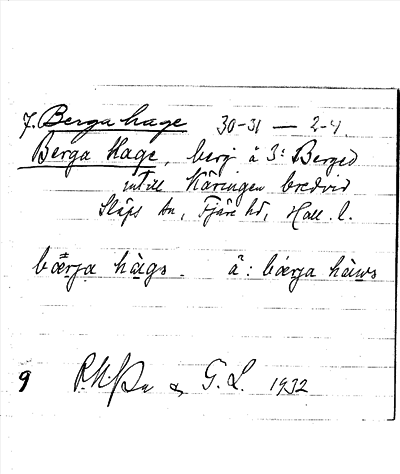 7. Berga hage 30-31 — 2-4.
Berga Hage, berg å 3: Berged
intill Käringen bredvid
Släps sn, Fjäre hd, Hall. l.
bærja hàgs. ä: bærja hàws
9 & G. L. 1932